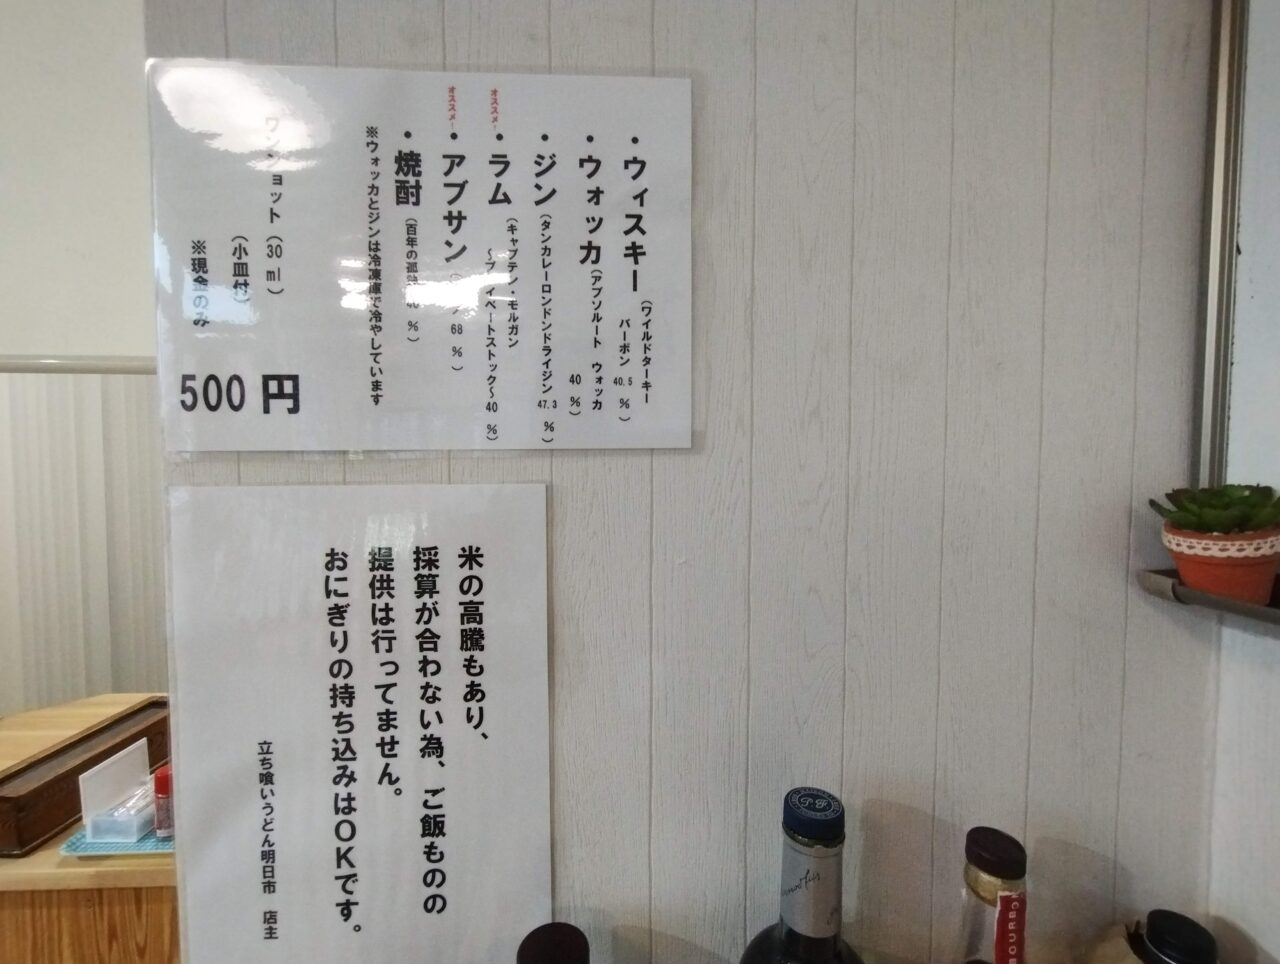 ・ウィスキー（ワイルドターキー
バーボン 40.5％）
・ウォッカ（アブソルート ウォッカ
40％）
・ジン（タンカレーロンドンドライジン 47.3％）
オススメ！
・ラム（キャプテン・モルガン
～プライベートストック～40％）
オススメ！
・アブサン 68％）
・焼酎（百年の孤独 40％）
※ウォッカとジンは冷凍庫で冷やしています
ワンショット（30ml）
（小皿付）
※現金のみ
500円
米の高騰もあり、
採算が合わない為、ご飯ものの
提供は行ってません。
おにぎりの持ち込みはOKです。
立ち喰いうどん明日市 店主
P.F
BOURBO